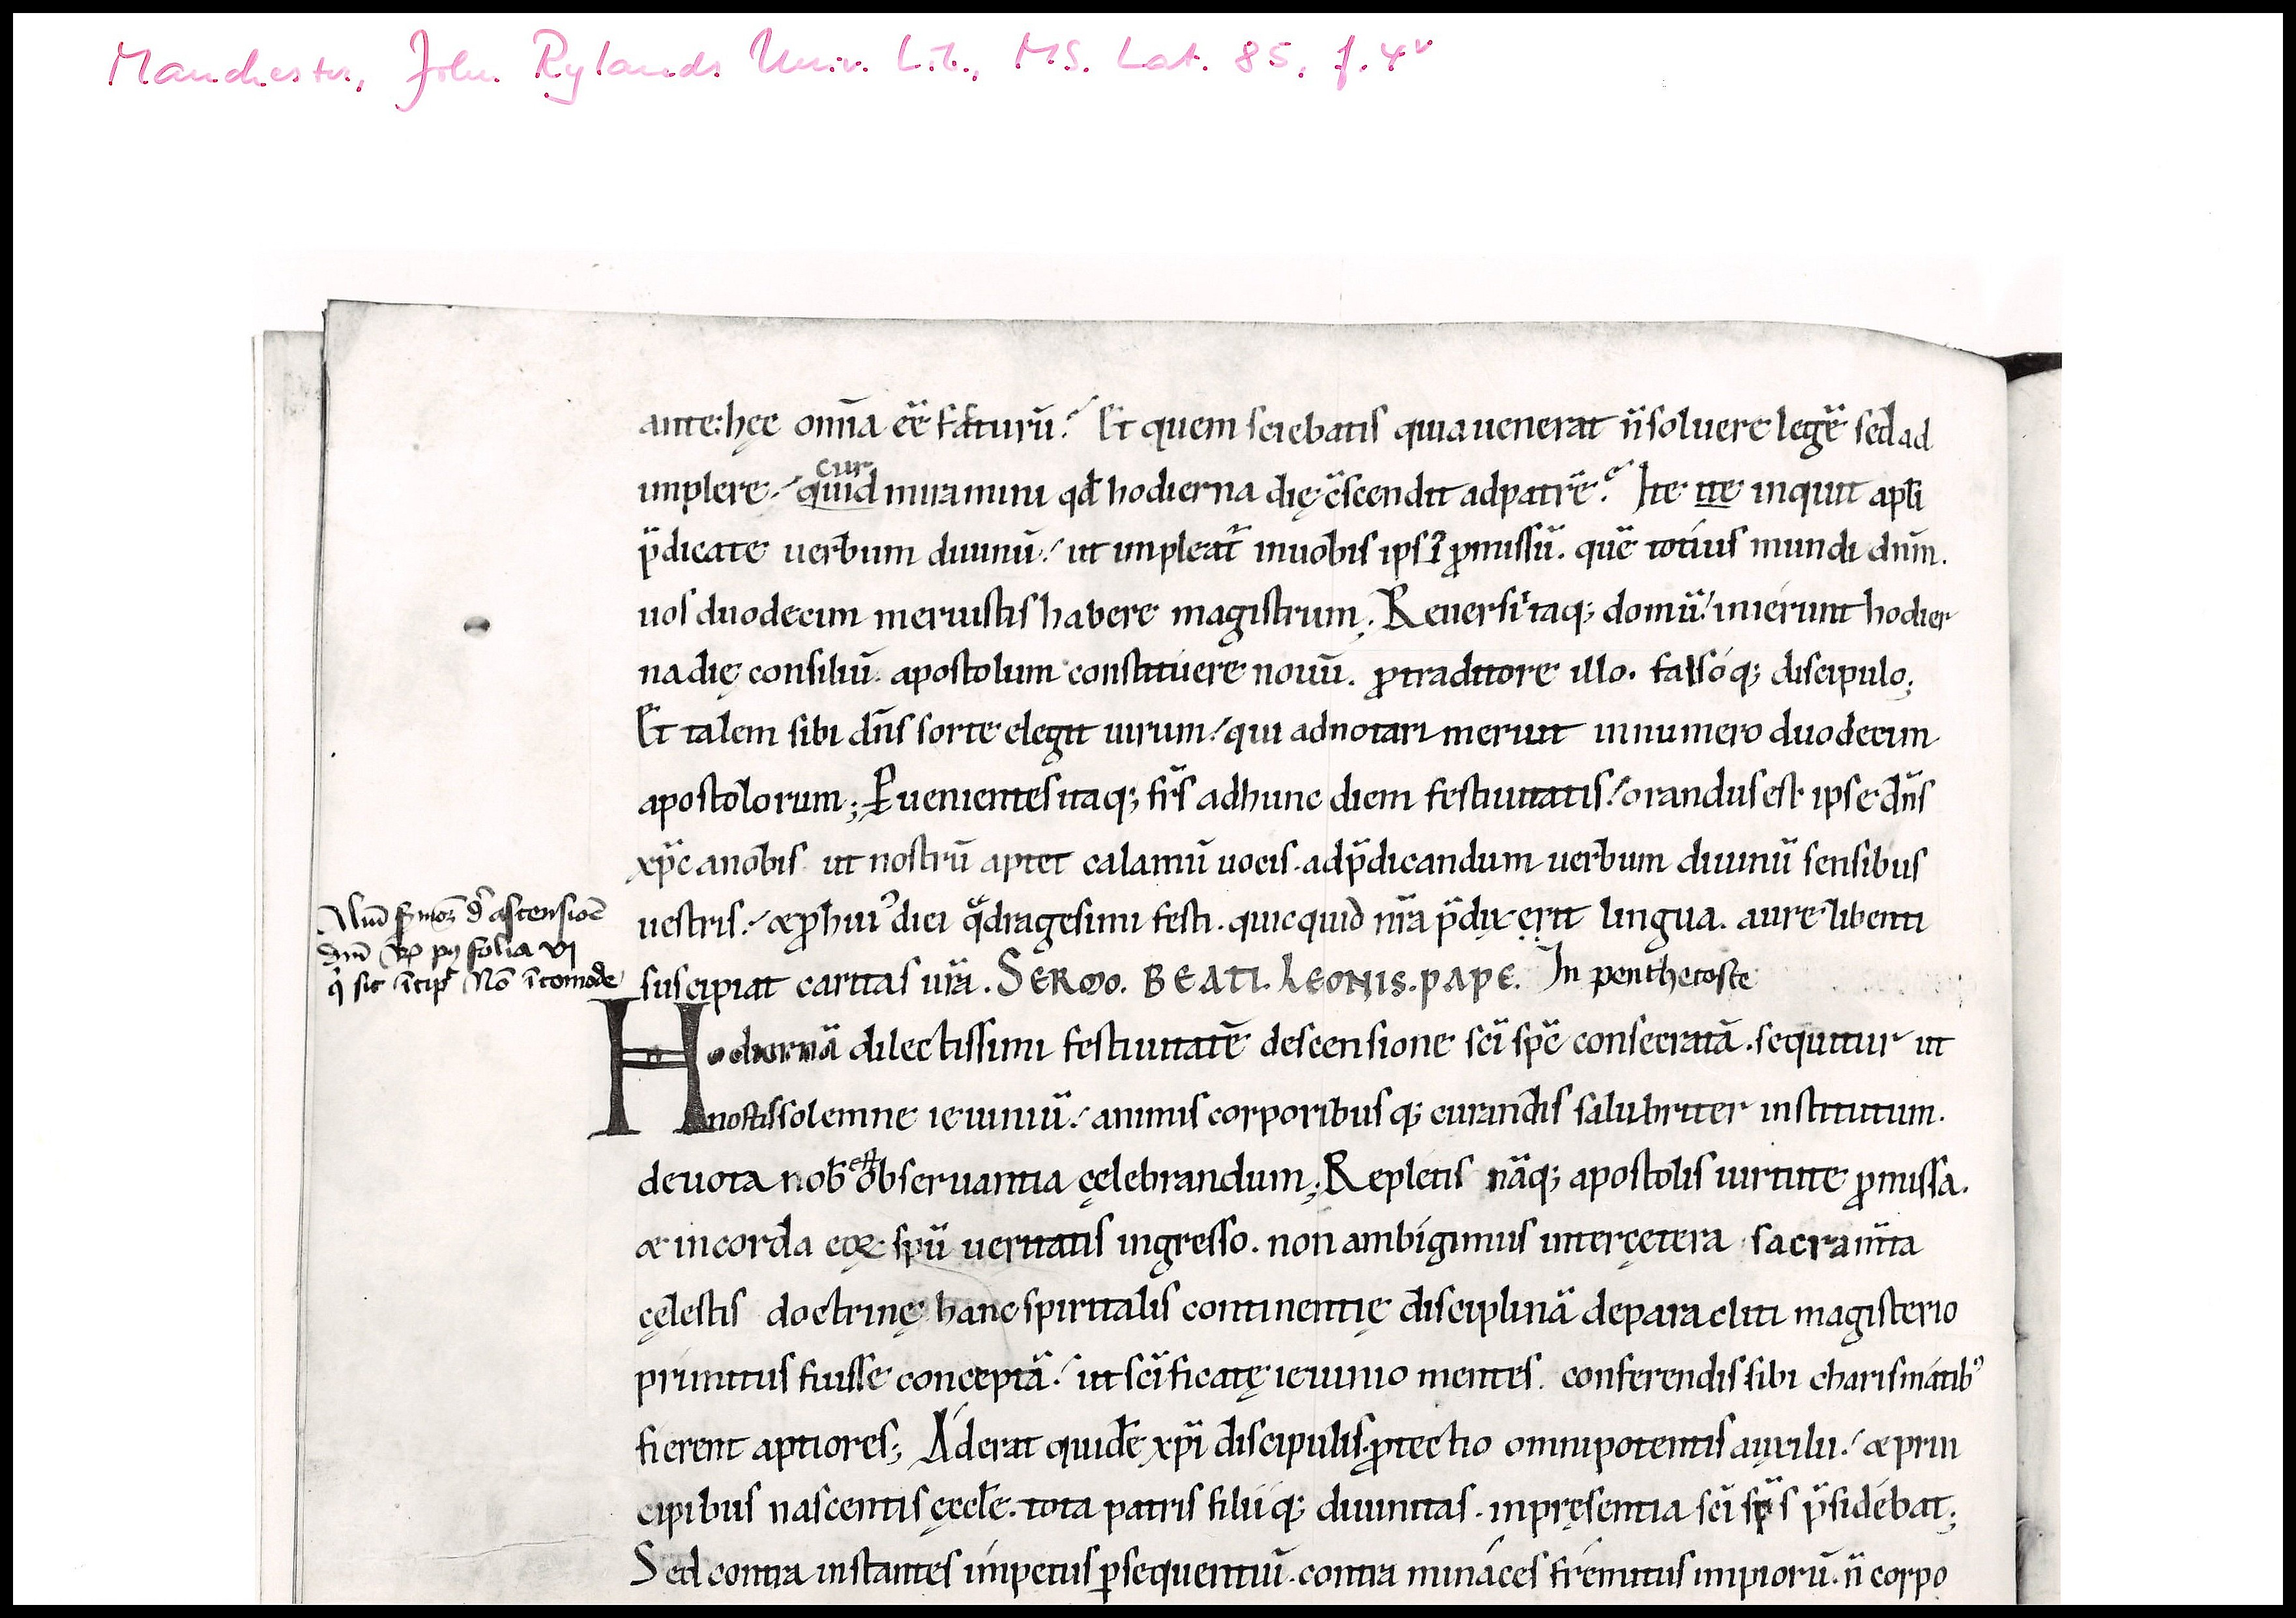 Manchester, John Rylands Univ. Lib., MS. Lat. 85, f. 4v
ante hęc om̅ia ee̅ facturu̅? Et quem sciebatis quia uenerat n̅ soluere lege̅ sed ad
cur
implere. quid miramini qđ hodierna dię ascendit ad patre̅? Ite ite inquit apl̅i
p̅dicate uerbum diuinu̅. ut impleat̅ in uobis ipsi᷑ ꝓmissu̅. que̅ totius mundi dn̅m.
uos duodecim meruistis habere magistrum; Reuersi itaq; domu̅. inierunt hodier
na dię consiliu̅. apostolum constituere nouu̅. ꝓ traditore illo. falsoq; discipulo;
Et talem sibi dn̅s sorte elegit uirum. qui adnotari meruit in numero duodecim
apostolorum; Euenientes itaq; fr̅s ad hunc diem festiuitatis. orandus est ipse dn̅s
xp̅c a nobis ut nostru̅ aptet calamu̅ uocis. ad p̅dicandum uerbum diuinu̅ sensibus
uestris. & ꝓ hui᷒ diei q̅dragesimi festi. quicquid nr̅a p̅dixerit lingua. aure libenti
suscipiat caritas ur̅a. SERMO. BEATI. LEONIS. PAPE. In penthecoste
Aliud ẜmo͞ꝫ de ascensio͞e
dn̅i folia vj
q̅ sic i̅cip̅ No̅ i̅comode
Hodierna̅ dilectissimi festiuitate̅ descensione sc̅i sp̅c consecrata̅. sequitur ut
nostis solemne ieiuniu̅. animis corporibusq; curandis salubriter institutum.
est
deuota nob̅ obseruantia cęlebrandum; Repletis na̅q; apostolis uirtute ꝓmissa.
& in corda eoꝝ sp̅u̅ ueritatis ingresso. non ambigimus inter cętera sacram̅ta
cęlestis doctrinę hanc spiritalis continentię disciplina̅ de paracliti magisterio
primitus fuisse concepta̅. ut sc̅ificatę ieiunio mentes. conferendis sibi charismatib᷒
fierent aptiores; Aderat quide̅ xp̅i discipulis ꝓtectio omnipotentis auxilii. & prin
cipibus nascentis ęccle̅. tota patris filiiq; diuinitas. in pręsentia sc̅i sp̅s p̅sidebat;
Sed contra instantes impetus ꝑsequentiu̅. contra minaces fremitus impioru̅. n̅ corpo